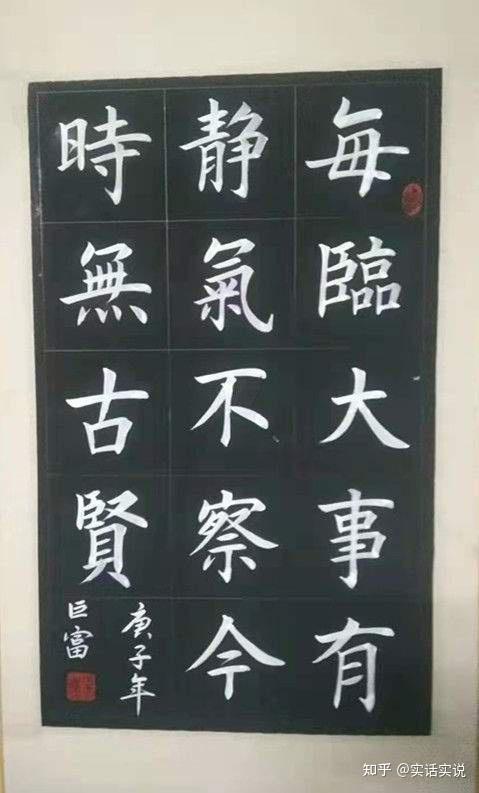 每臨大事有
静氣不察今
時無古賢
庚子年
巨富
知乎 @实话实说